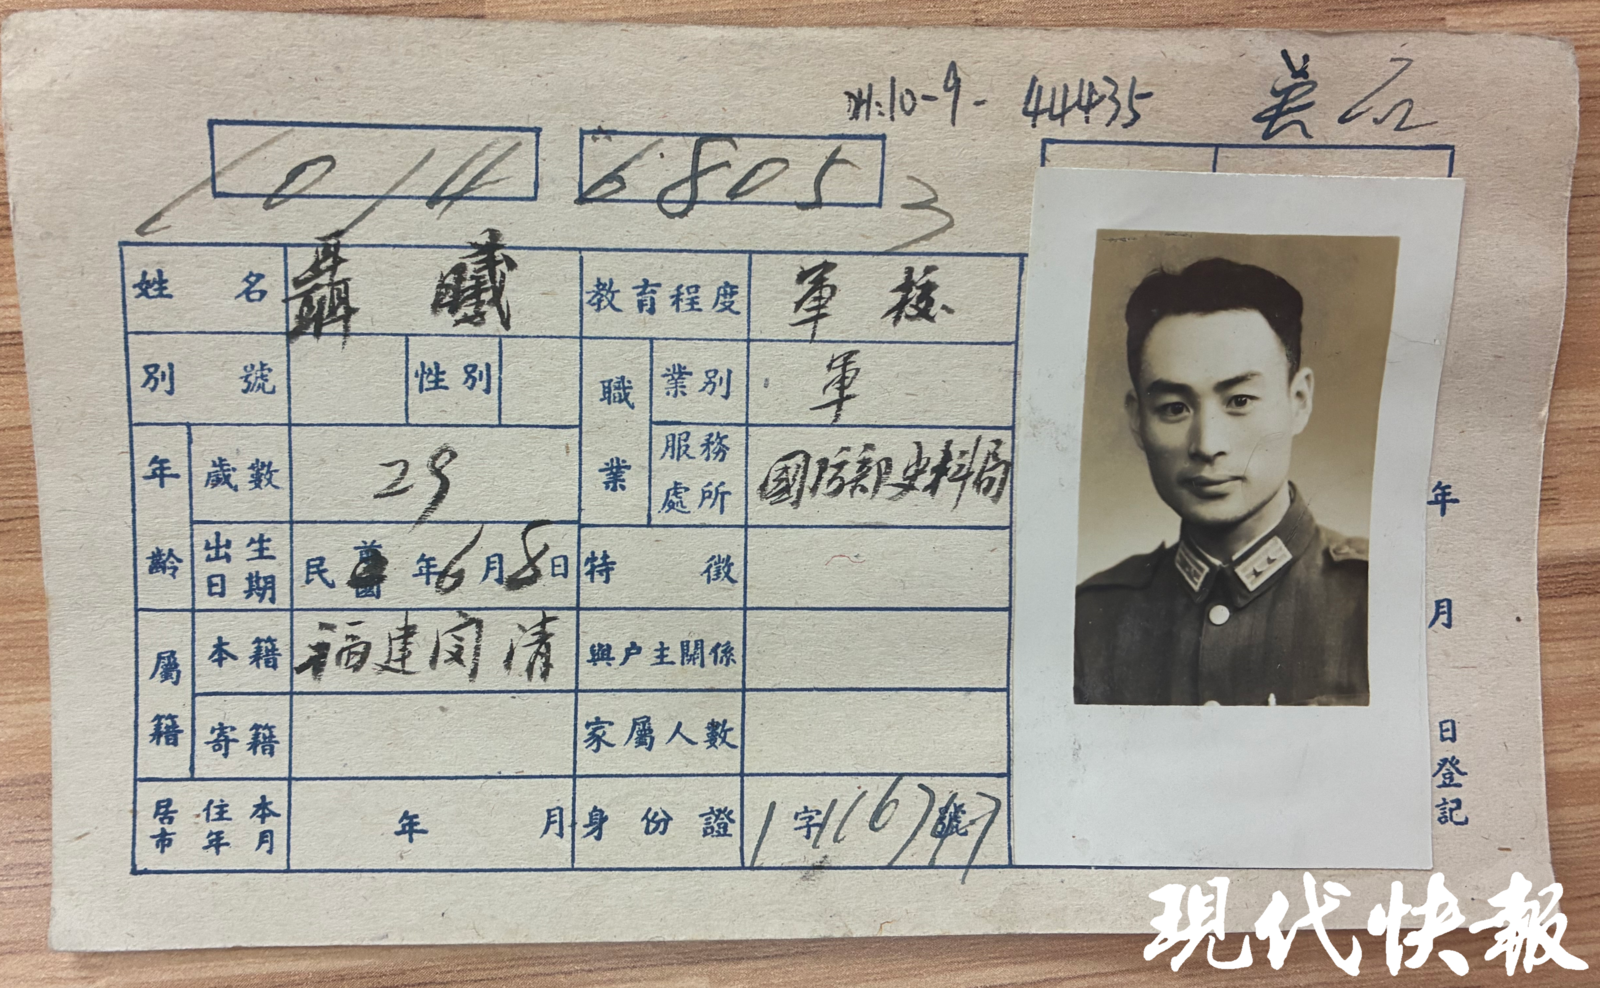 H:10-9- 44435
1014 68053
姓名 聶曦 教育程度 軍校
別號 性別 職業 業別 軍
年齡 歲數 29 服務處所 國防部史料局
出生日期 民前國 年6月8日 特徵
屬籍 本籍 福建閩清 與戶主關係
寄籍 家屬人數
居住本市年月 年 月 身份證 1字11677號
年 月 日登記
現代快報